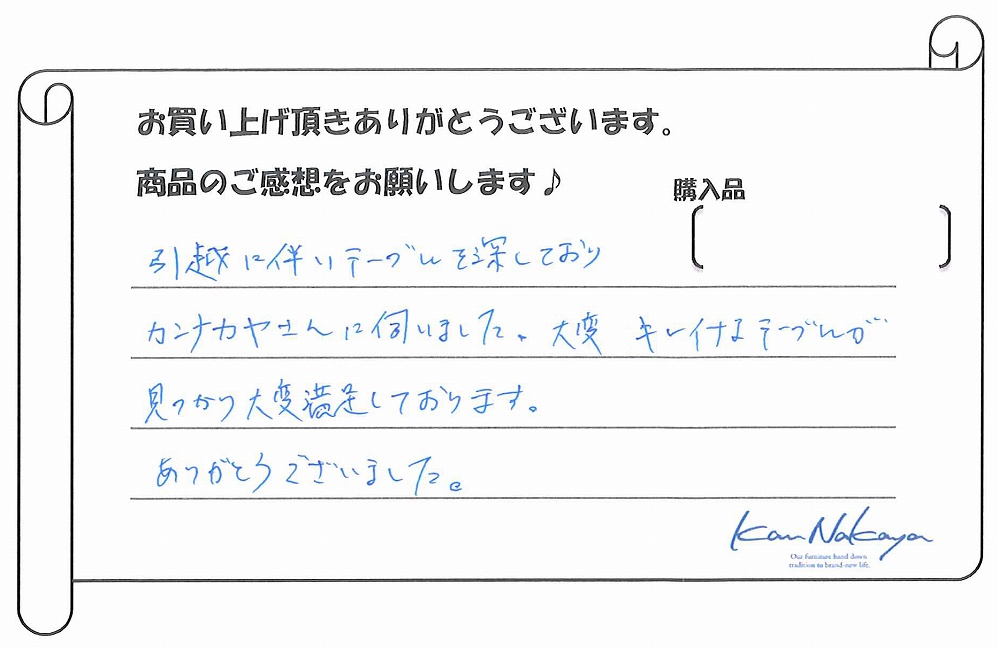 お買い上げ頂きありがとうございます。
商品のご感想をお願いします♪
購入品
引越に伴いテーブルを探しており
カンナカヤさんに伺いました。大変 キレイなテーブルが
見つかり大変満足しております。
ありがとうございました。
Kan Nakaya
Our furniture hand down
tradition to brand-new life.